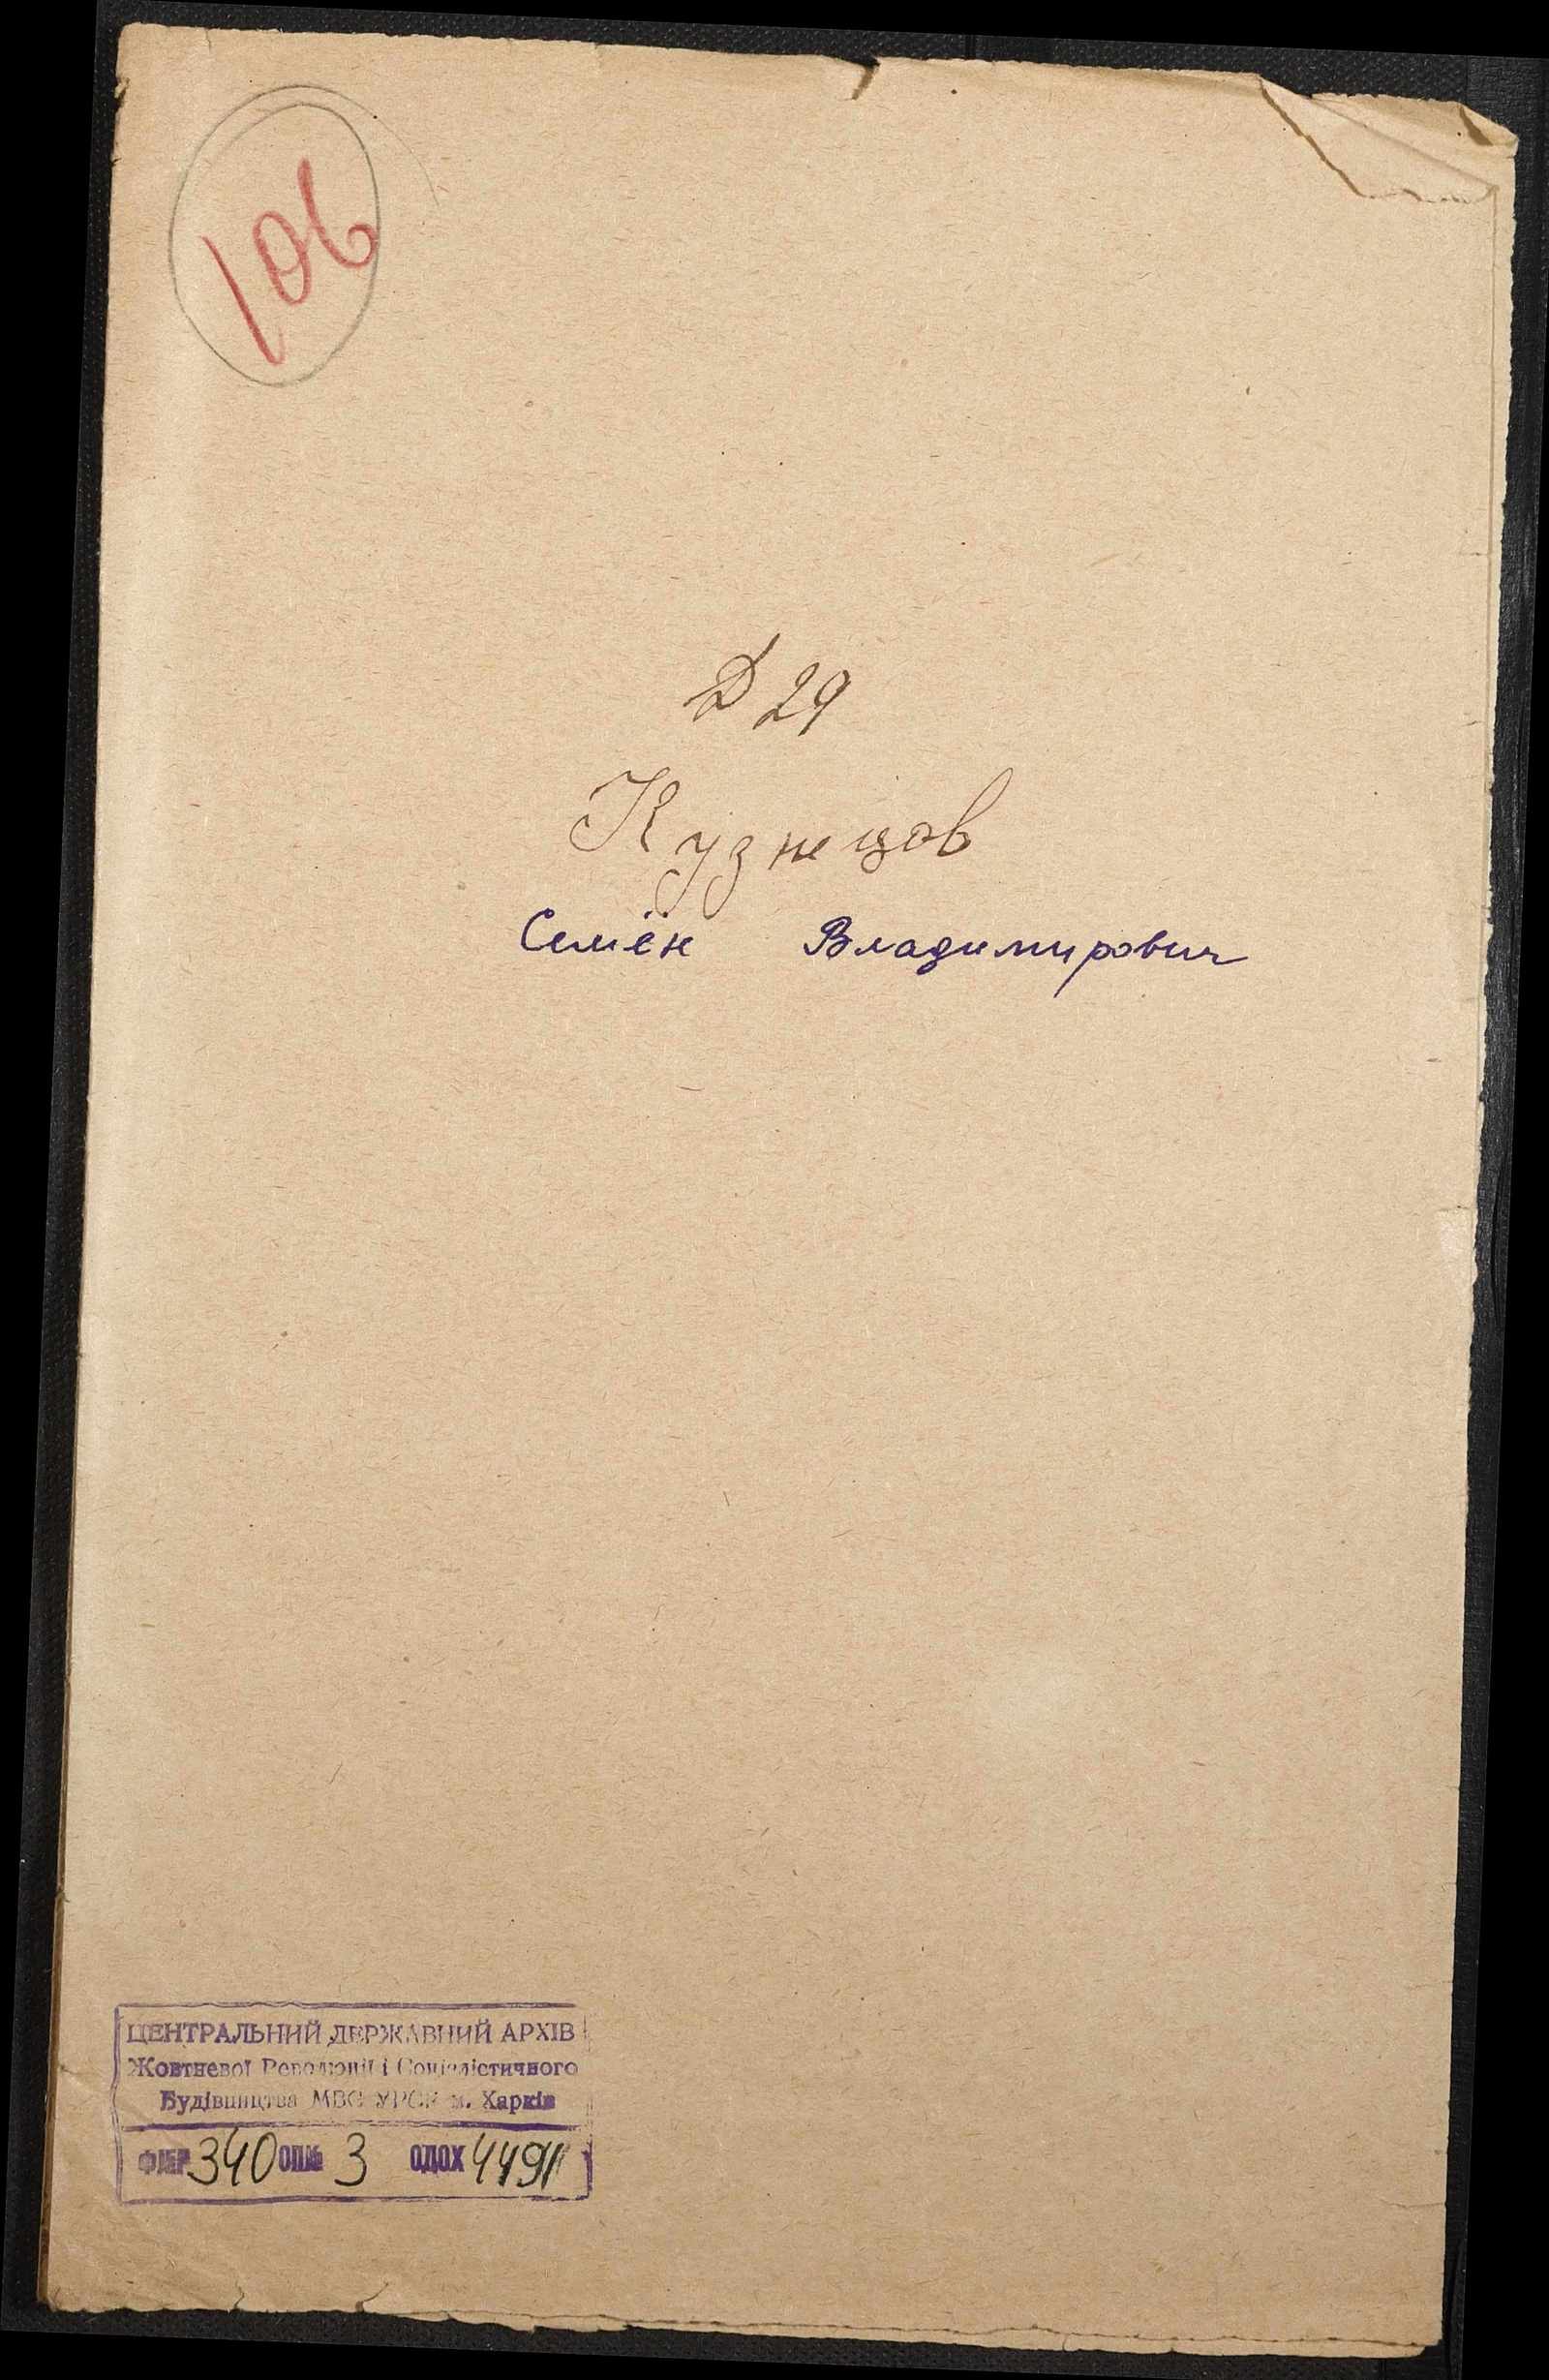 106
Д 29
Кузнецов
Семён Владимирович
ЦЕНТРАЛЬНИЙ ДЕРЖАВНИЙ АРХІВ
Жовтневої Революції і Соціалістичного
Будівництва МВС УРСР м. Харків
340 ОП№ 3 ОДОХ 4491